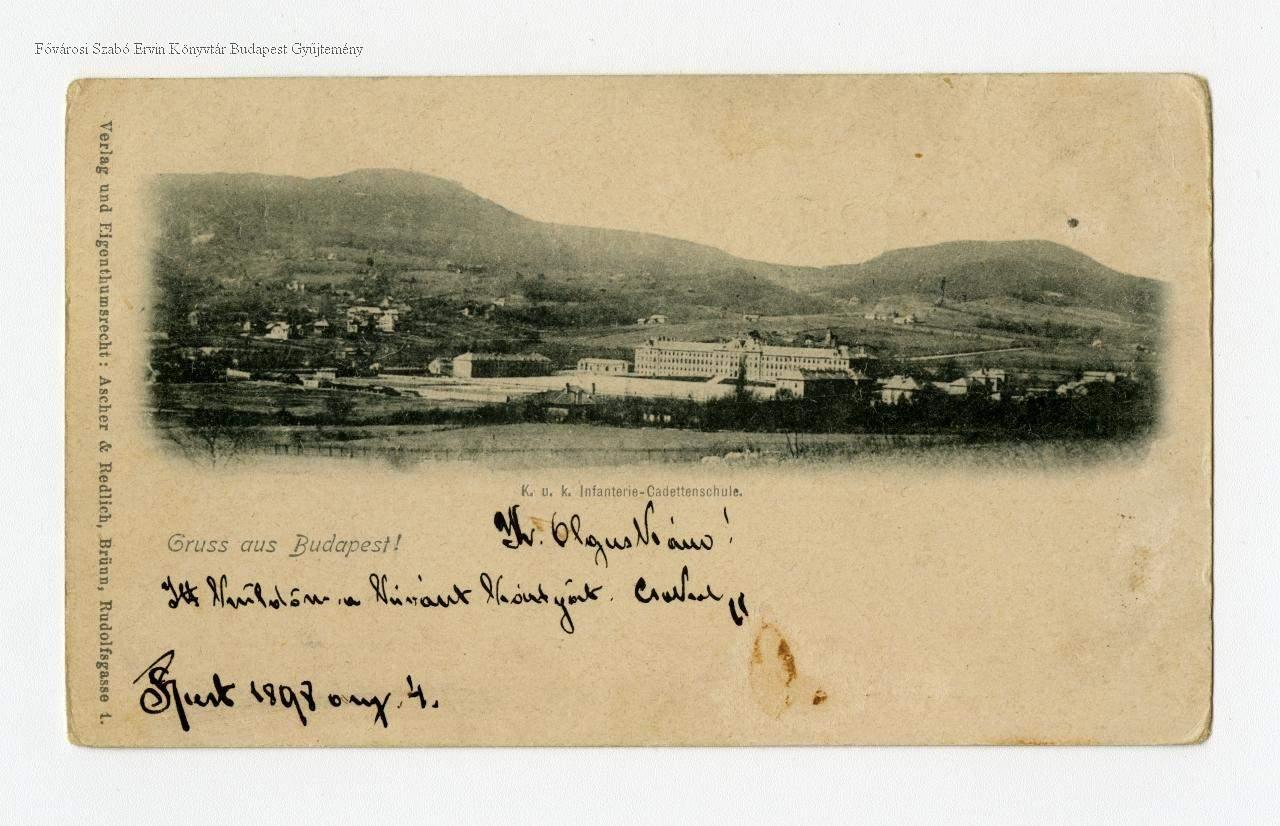 Fővárosi Szabó Ervin Könyvtár Budapest Gyűjtemény
Verlag und Eigenthumsrecht: Ascher & Redlich, Brünn, Rudolfsgasse 1.
K. u. k. Infanterie-Cadettenschule.
Gruss aus Budapest!
Kr. Olguskám!
Itt küldöm a kívánt kártyát.
Pest 1898 aug. 4.